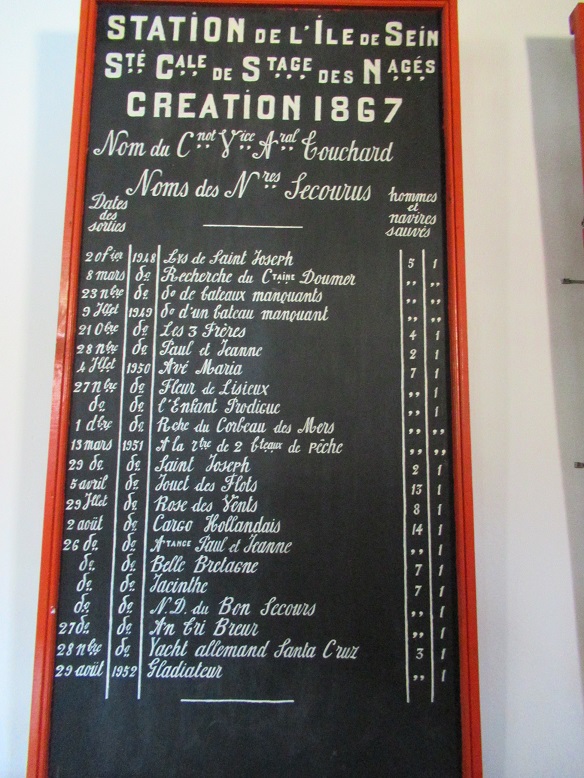 STATION DE L'ÎLE DE SEIN
STÉ CALE DE STAGE DES NAGÉS
CREATION 1867
Nom du Cnot Vice Aral Touchard
Noms des Nres Secourus
Dates des sorties
hommes et navires sauvés
20 fier 1948 Lys de Saint Joseph 5 1
8 mars do Recherche du Ctaine Doumer ,, ,,
23 nbre do do de bateaux manquants ,, ,,
9 Jllet 1949 do d'un bateau manquant ,, ,,
21 Obre do Les 3 Frères 4 1
28 nbre do Paul et Jeanne 2 1
4 Jllet 1950 Avé Maria 7 1
27 nbre do Fleur de Lisieux ,, 1
do do l'Enfant Prodigue ,, 1
1 dbre do Rche du Corbeau des Mers ,, ,,
13 mars 1951 A la rbre de 2 bteaux de pêche ,, ,,
29 do do Saint Joseph 2 1
5 avril do Jouet des Flots 13 1
29 Jllet do Rose des Vents 8 1
2 août do Cargo Hollandais 14 1
26 do do Atance Paul et Jeanne ,, 1
do do Belle Bretagne 7 1
do do Jacinthe 7 1
do do N.D. du Bon Secours ,, 1
27 do do An Tri Breur ,, 1
28 nbre do Yacht allemand Santa Cruz 3 1
29 août 1952 Gladiateur ,, 1